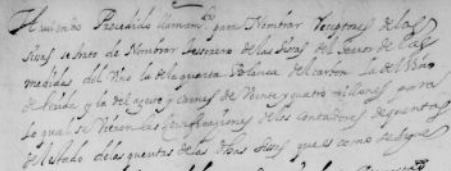 Habiendo Precedido llamam.to para Nombrar Receptores de las
sisas se trato de Nombrar Tesorero de las sisas del Tercio de las
medidas del Vino la de la quarta Blanca del carbon La del Vino
de y la del açucar y Carnes de Veinte y quatro millones para
Lo qual se Vieron las Certificaciones de los contadores de quentas
del estado de las quentas de las dhas sisas que es como se sigue